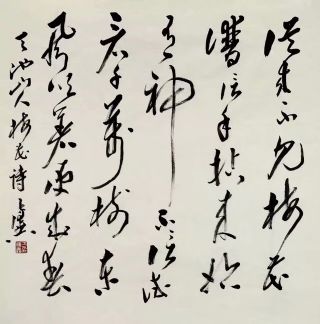 從來不見梅花
譜信手拈來
有神不信試
看千萬樹東
風吹著便成春
天池山人梅花詩